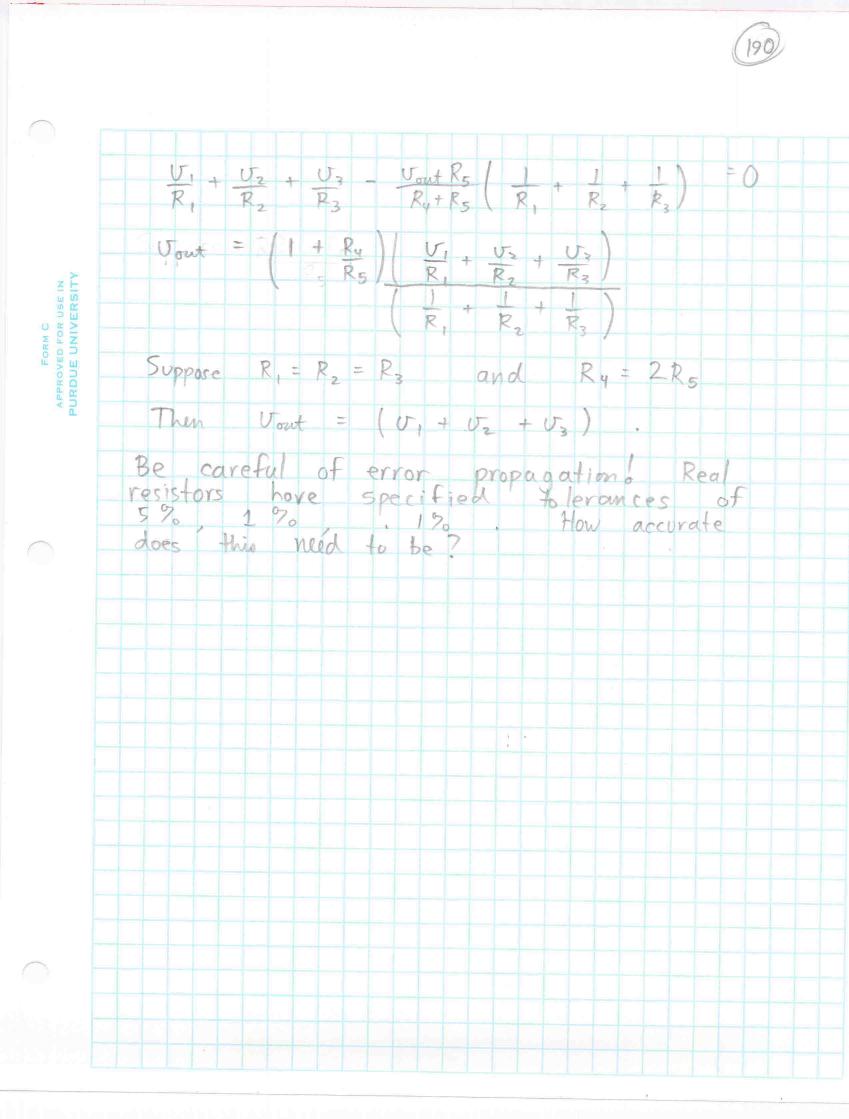 190
FORM C
APPROVED FOR USE IN
PURDUE UNIVERSITY
v₁/R₁ + v₂/R₂ + v₃/R₃ - (vout R₅)/(R₄ + R₅) (1/R₁ + 1/R₂ + 1/R₃) = 0
vout = (1 + R₄/R₅) (v₁/R₁ + v₂/R₂ + v₃/R₃) / (1/R₁ + 1/R₂ + 1/R₃)
Suppose R₁ = R₂ = R₃ and R₄ = 2R₅
Then vout = (v₁ + v₂ + v₃) .
Be careful of error propagation! Real
resistors have specified tolerances of
5%, 1%, .1%. How accurate
does this need to be?